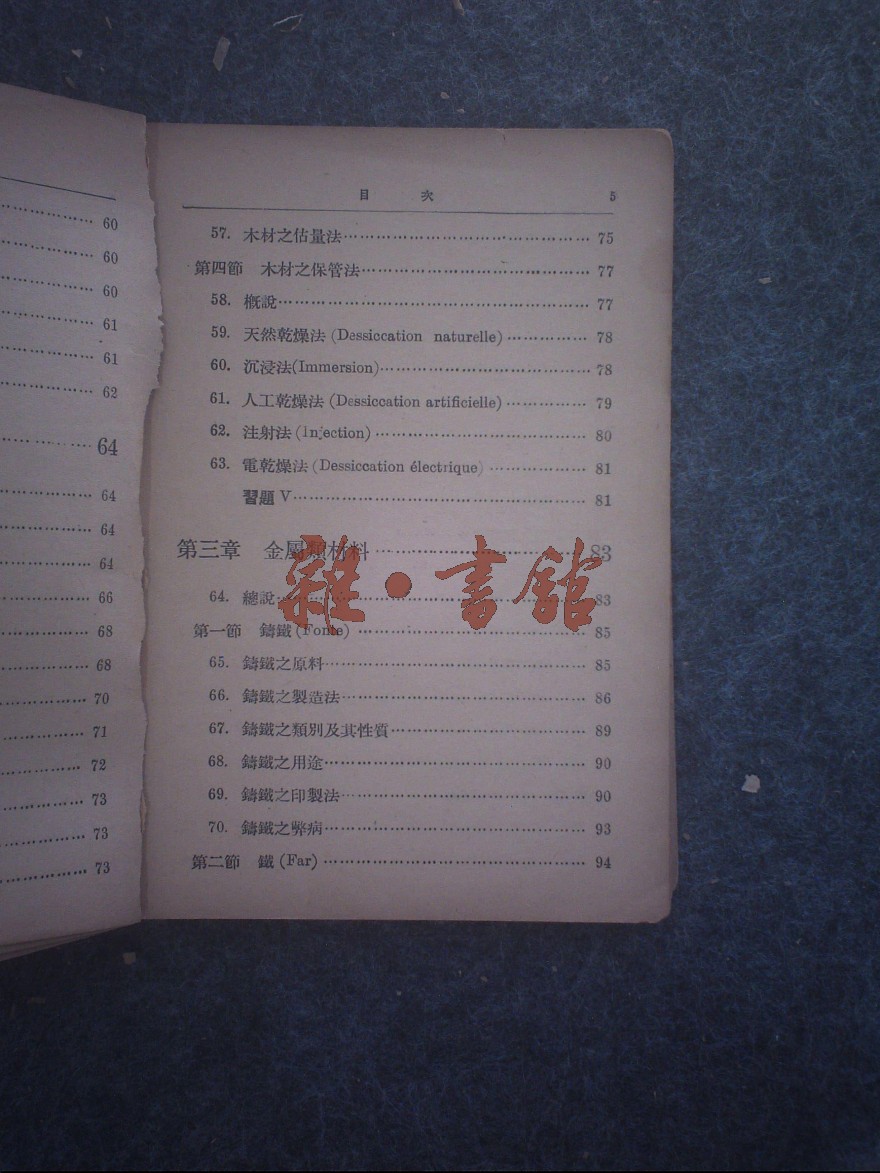 60
60
60
61
61
62
64
64
64
64
66
68
68
70
71
72
73
73
73
目 次 5
57. 木材之估量法 75
第四節 木材之保管法 77
58. 概說 77
59. 天然乾燥法 (Dessiccation naturelle) 78
60. 沉浸法(Immersion) 78
61. 人工乾燥法 (Dessiccation artificielle) 79
62. 注射法 (Injection) 80
63. 電乾燥法 (Dessiccation électrique) 81
習題 V 81
第三章 金屬類材料 83
64. 總說 83
第一節 鑄鐵 (Fonte) 85
65. 鑄鐵之原料 85
66. 鑄鐵之製造法 86
67. 鑄鐵之類別及其性質 89
68. 鑄鐵之用途 90
69. 鑄鐵之印製法 90
70. 鑄鐵之弊病 93
第二節 鐵 (Far) 94
雜·書館